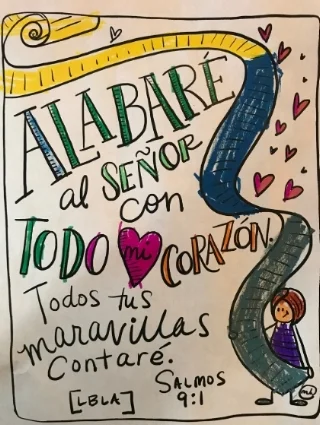 ALABARÉ
al SEÑOR
con
TODO mi CORAZÓN.
Todos tus
maravillas
Contaré.
[LBLA] SALMOS
9:1